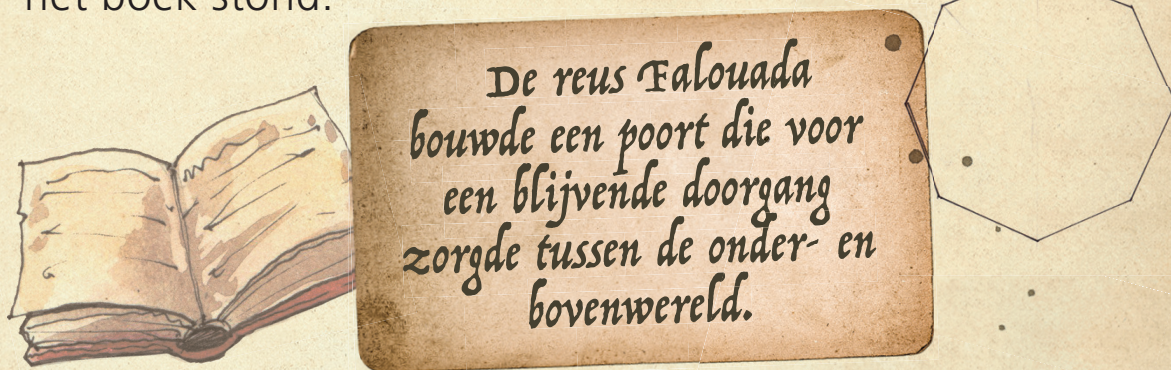 het boek stond.
De reus Falouada
bouwde een poort die voor
een blijvende doorgang
zorgde tussen de onder- en
bovenwereld.